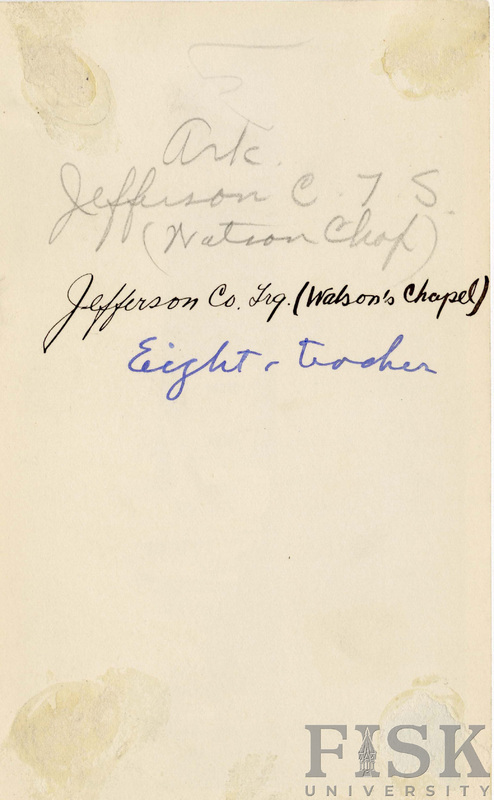 Ark.
Jefferson C. T. S.
(Watson Chap)
Jefferson Co. Trg. (Watson's Chapel)
Eight-teacher
FISK
UNIVERSITY